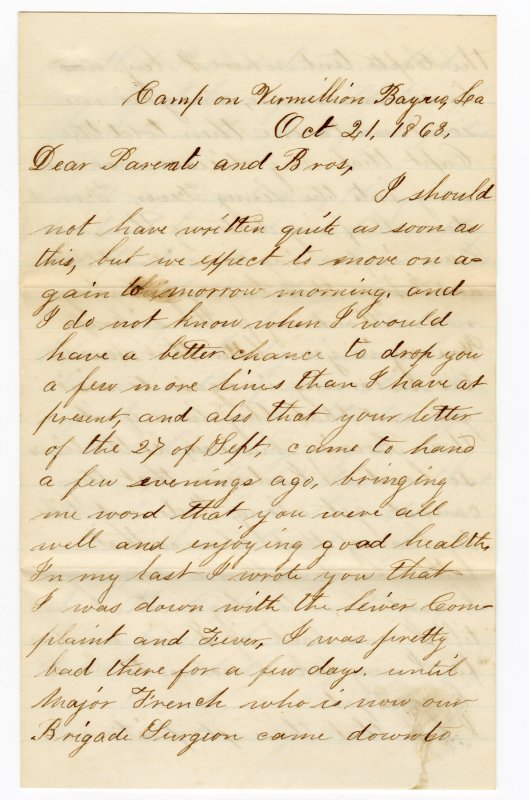 Camp on Vermillion Bayou, La
Oct 21, 1863,
Dear Parents and Bros,
I should
not have written quite as soon as
this, but we expect to move on a-
gain tomorrow morning, and
I do not know when I would
have a better chance to drop you
a few more lines than I have at
present, and also that your letter
of the 27 of Sept, came to hand
a few evenings ago, bringing
me word that you were all
well and enjoying good health,
In my last I wrote you that
I was down with the Liver Com-
plaint and Fever, I was pretty
bad there for a few days. until
Major French who is now our
Brigade Surgeon came down to